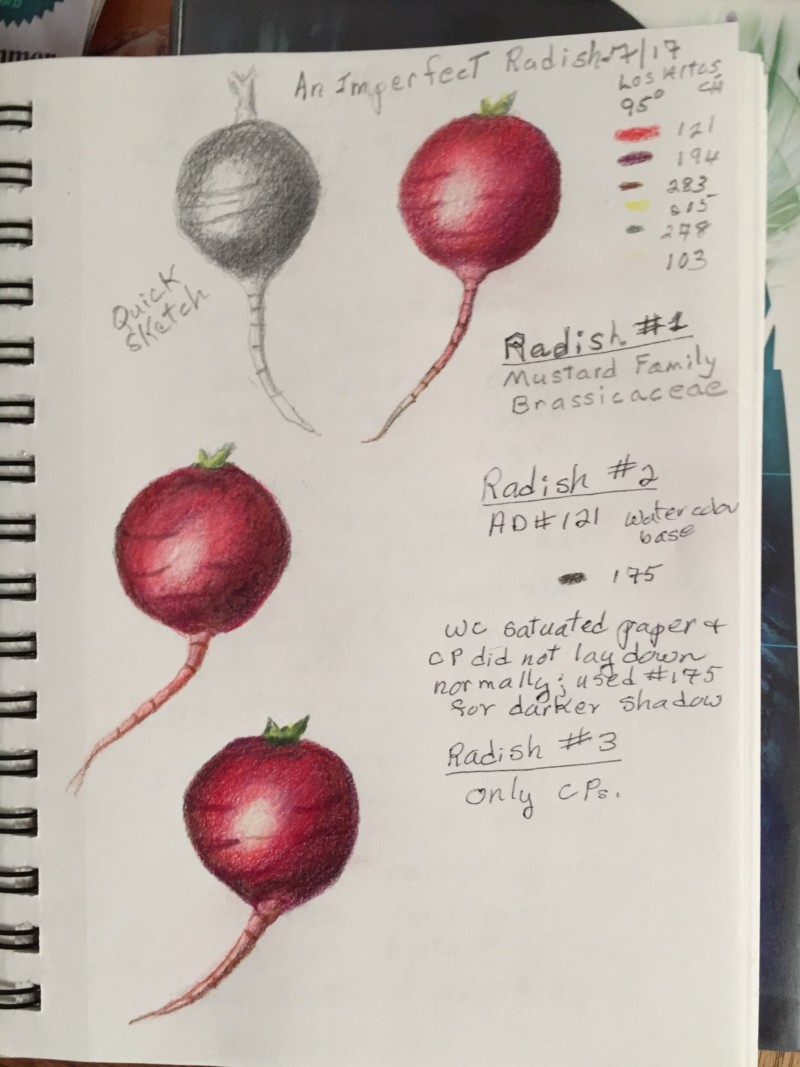 An Imperfect Radish 7/17
Los Altos
CA
95°
121
194
283
278
103
Quick
Sketch
Radish #1
Mustard Family
Brassicaceae
Radish #2
AD#121 watercolor
base
175
WC satuated paper +
CP did not lay down
normally; used #175
for darker shadow
Radish #3
only CPs.